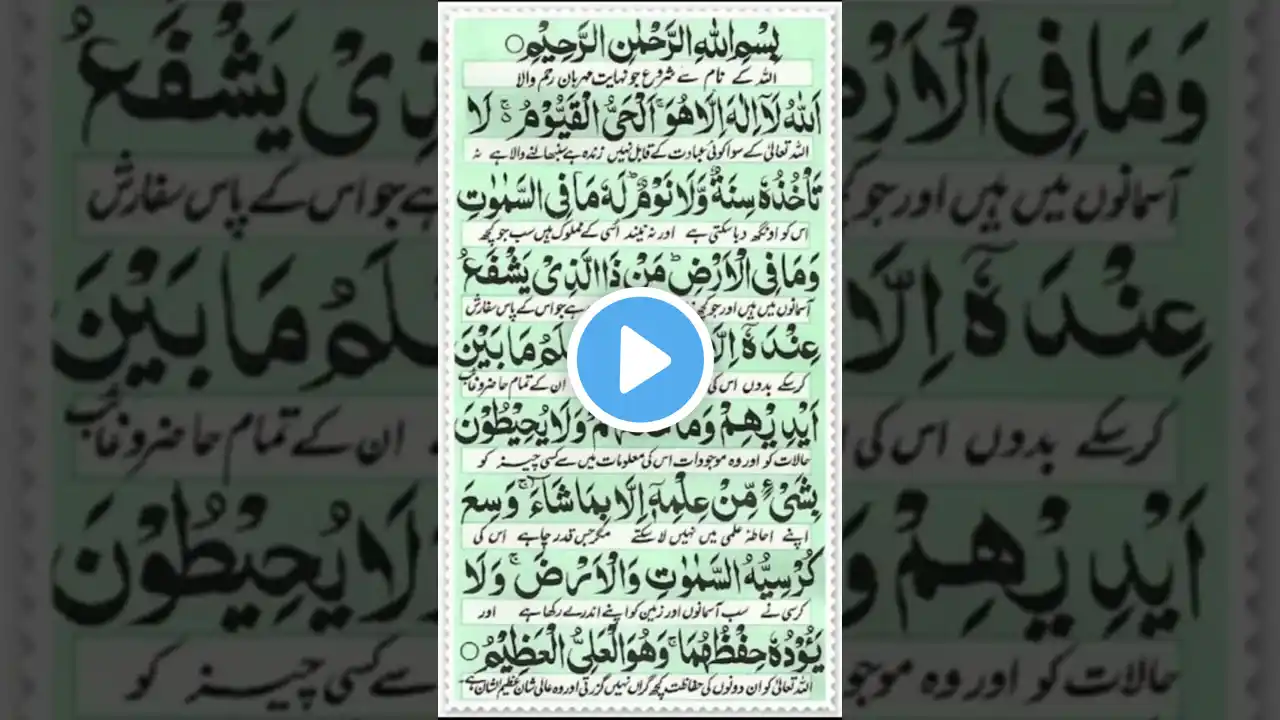 بِسْمِ اللهِ الرَّحْمٰنِ الرَّحِيْمِ ○
اللہ کے نام سے شروع جو نہایت مہربان رحم والا
اَللهُ لَاۤ اِلٰهَ اِلَّا هُوَ ۚ اَلْحَىُّ الْقَيُّوْمُ ۚ لَا
اللہ تعالیٰ کے سوا کوئی عبادت کے قابل نہیں زندہ ہے سنبھالنے والا ہے نہ
تَاْخُذُهٗ سِنَةٌ وَّلَا نَوْمٌ ؕ لَهٗ مَا فِى السَّمٰوٰتِ
اس کو اونگھ دبا سکتی ہے اور نہ نیند اسی کے مملوک ہیں سب جو کچھ
وَمَا فِى الْاَرْضِ ؕ مَنْ ذَا الَّذِىْ يَشْفَعُ
آسمانوں میں ہیں اور جو کچھ ہے جو اس کے پاس سفارش
عِنْدَهٗۤ اِلَّا مَا بَيْنَ
کرسکے بدوں اس کی ان کے تمام حاضر و غائب
اَيْدِيْهِمْ وَمَا وَلَا يُحِيْطُوْنَ
حالات کو اور وہ موجودات اس کی معلومات میں سے کسی چیز کو
بِشَىْءٍ مِّنْ عِلْمِهٖۤ اِلَّا بِمَا شَآءَ ۚ وَسِعَ
اپنے احاطۂ علمی میں نہیں لا سکتے مگر جس قدر چاہے اس کی
كُرْسِيُّهُ السَّمٰوٰتِ وَالْاَرْضَ ۚ وَلَا
کرسی نے سب آسمانوں اور زمین کو اپنے اندر لے رکھا ہے اور
يَـُٔوْدُهٗ حِفْظُهُمَا ۚ وَهُوَ الْعَلِىُّ الْعَظِيْمُ ○
اللہ تعالیٰ کو ان دونوں کی حفاظت کچھ گراں نہیں گزرتی اور وہ عالی شان عظیم الشان ہے